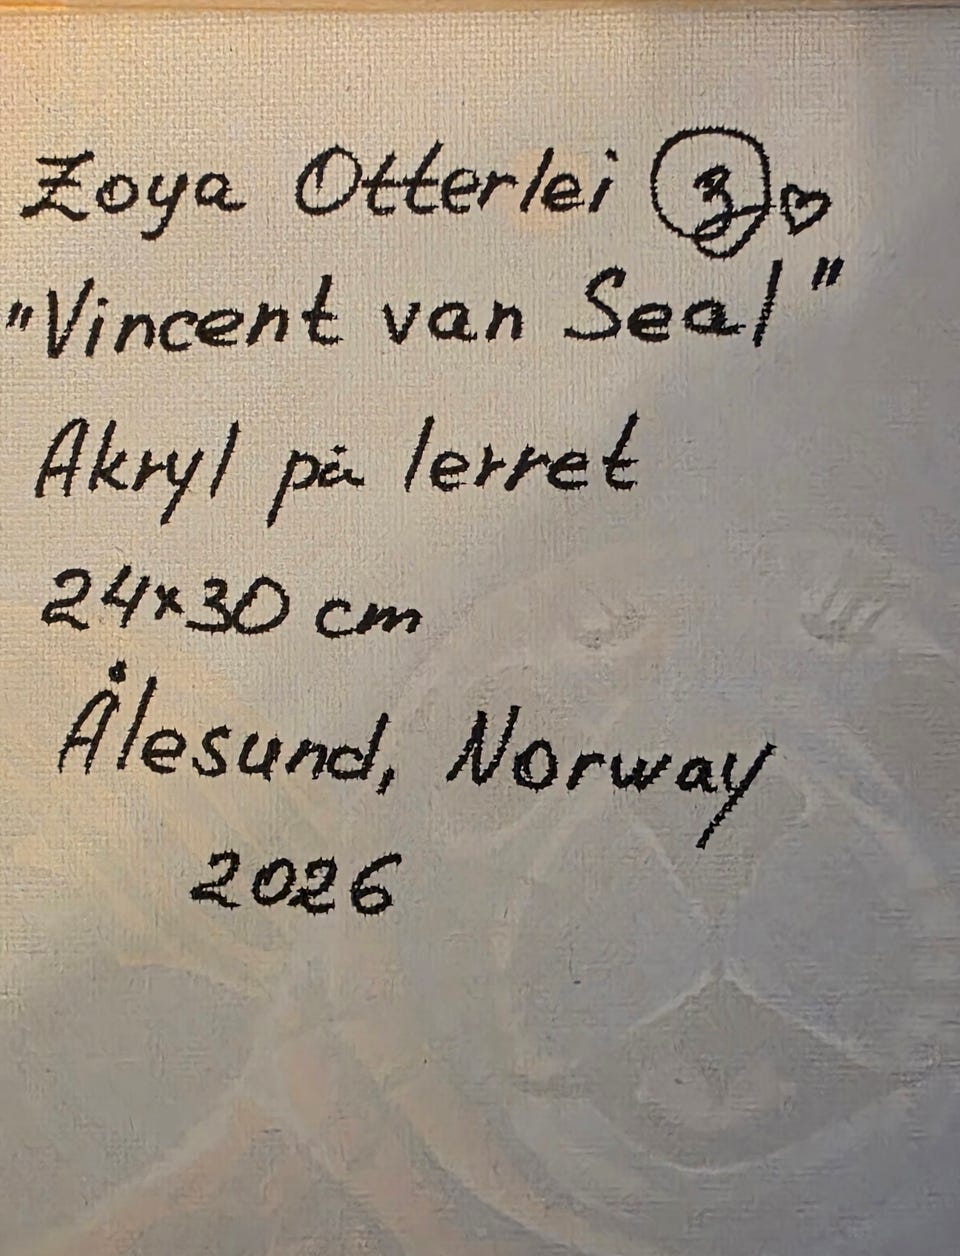 Zoya Otterlei Z
"Vincent van Seal"
Akryl på lerret
24×30 cm
Ålesund, Norway
2026